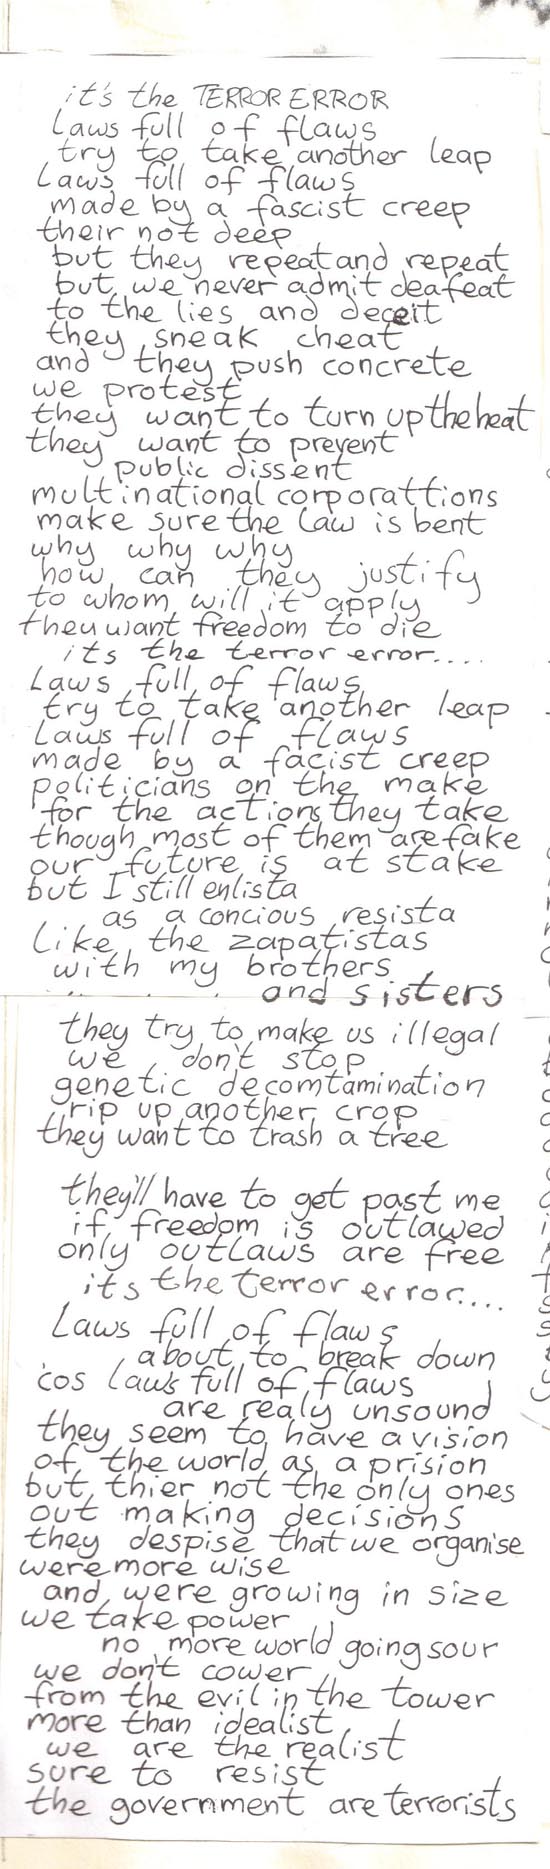 it's the TERROR ERROR
Laws full of flaws
try to take another leap
Laws full of flaws
made by a fascist creep
their not deep
but they repeat and repeat
but we never admit deafeat
to the lies and deceit
they sneak cheat
and they push concrete
we protest
they want to turn up the heat
they want to prevent
public dissent
multinational corporattions
make sure the law is bent
why why why
how can they justify
to whom will it apply
they want freedom to die
its the terror error....
Laws full of flaws
try to take another leap
Laws full of flaws
made by a facist creep
politicians on the make
for the actions they take
though most of them are fake
our future is at stake
but I still enlista
as a concious resista
like the zapatistas
with my brothers
and sisters
they try to make us illegal
we don't stop
genetic decomtamination
rip up another crop
they want to trash a tree
they'll have to get past me
if freedom is outlawed
only outlaws are free
its the terror error....
Laws full of flaws
about to break down
cos laws full of flaws
are realy unsound
they seem to have a vision
of the world as a prision
but thier not the only ones
out making decisions
they despise that we organise
were more wise
and were growing in size
we take power
no more world going sour
we don't cower
from the evil in the tower
more than idealist
we are the realist
sure to resist
the government are terrorists